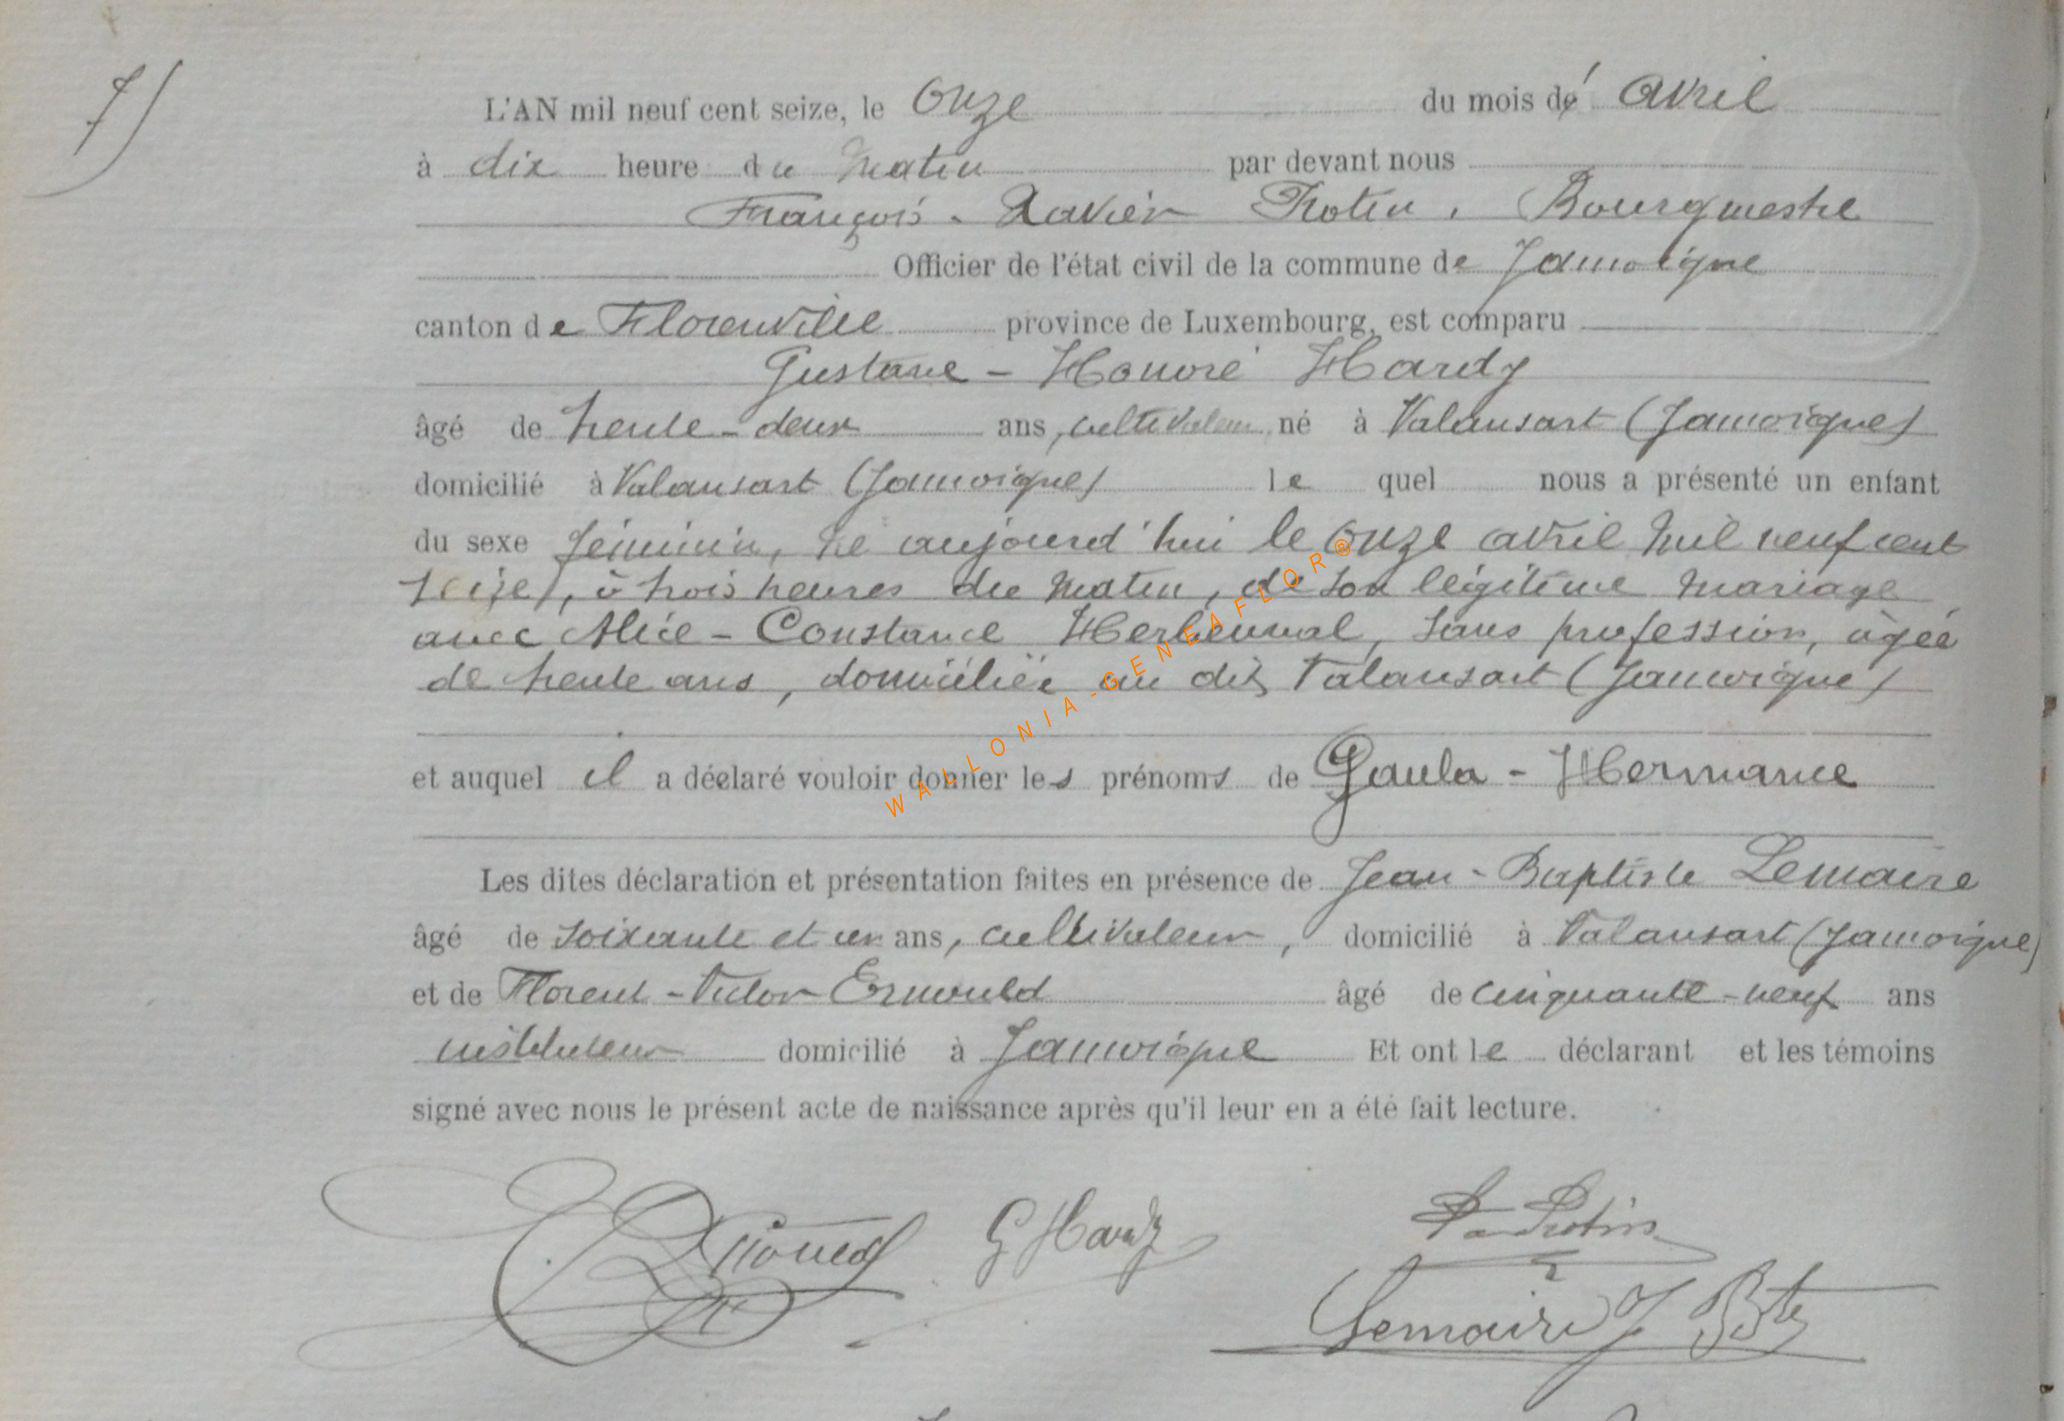 7)
L'AN mil neuf cent seize, le onze du mois dé avril
à dix heure du matin par devant nous
François-Xavier Protin, Bourgmestre
Officier de l'état civil de la commune de Jamoigne
canton de Florenville province de Luxembourg, est comparu
Gustave-Honoré Hardy
âgé de trente-deux ans, cultivateur né à Valansart (Jamoigne)
domicilié à Valansart (Jamoigne) le quel nous a présenté un enfant
du sexe féminin, né aujourd'hui le onze avril mil neuf cent
seize, à trois heures du matin, de son légitime mariage
avec Alice-Constance Herbeuval, sans profession, âgée
de trente ans, domiciliée au dit Valansart (Jamoigne)
et auquel il a déclaré vouloir donner les prénoms de Paula-Hermance
Les dites déclaration et présentation faites en présence de Jean-Baptiste Lemaire
âgé de soixante et un ans, cultivateur, domicilié à Valansart (Jamoigne)
et de Florent-Victor Ernould âgé de cinquante-neuf ans
instituteur domicilié à Jamoigne Et ont le déclarant et les témoins
signé avec nous le présent acte de naissance après qu'il leur en a été fait lecture.
G Hardy Protin
Lemaire J Bte
WALLONIA-GENEAFLOR®